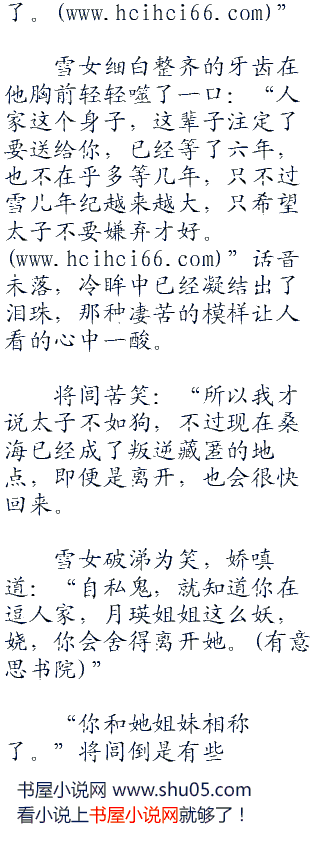 了。(www.hcihci66.com)”
雪女细白整齐的牙齿在
他胸前轻轻噬了一口：“人
家这个身子，这辈子注定了
要送给你，已经等了六年，
也不在乎多等几年，只不过
雪儿年纪越来越大，只希望
太子不要嫌弃才好。
(www.hcihci66.com)”话音
未落，冷眸中已经凝结出了
泪珠，那种凄苦的模样让人
看的心中一酸。
将闾苦笑：“所以我才
说太子不如狗，不过现在桑
海已经成了叛逆藏匿的地
点，即便是离开，也会很快
回来。
雪女破涕为笑，娇嗔
道：“自私鬼，就知道你在
逗人家，月瑛姐姐这么妖，
娆，你会舍得离开她。(有意
思书院)”
“你和她姐妹相称
了。”将闾倒是有些
书屋小说网 www.shu05.com
看小说上书屋小说网就够了！